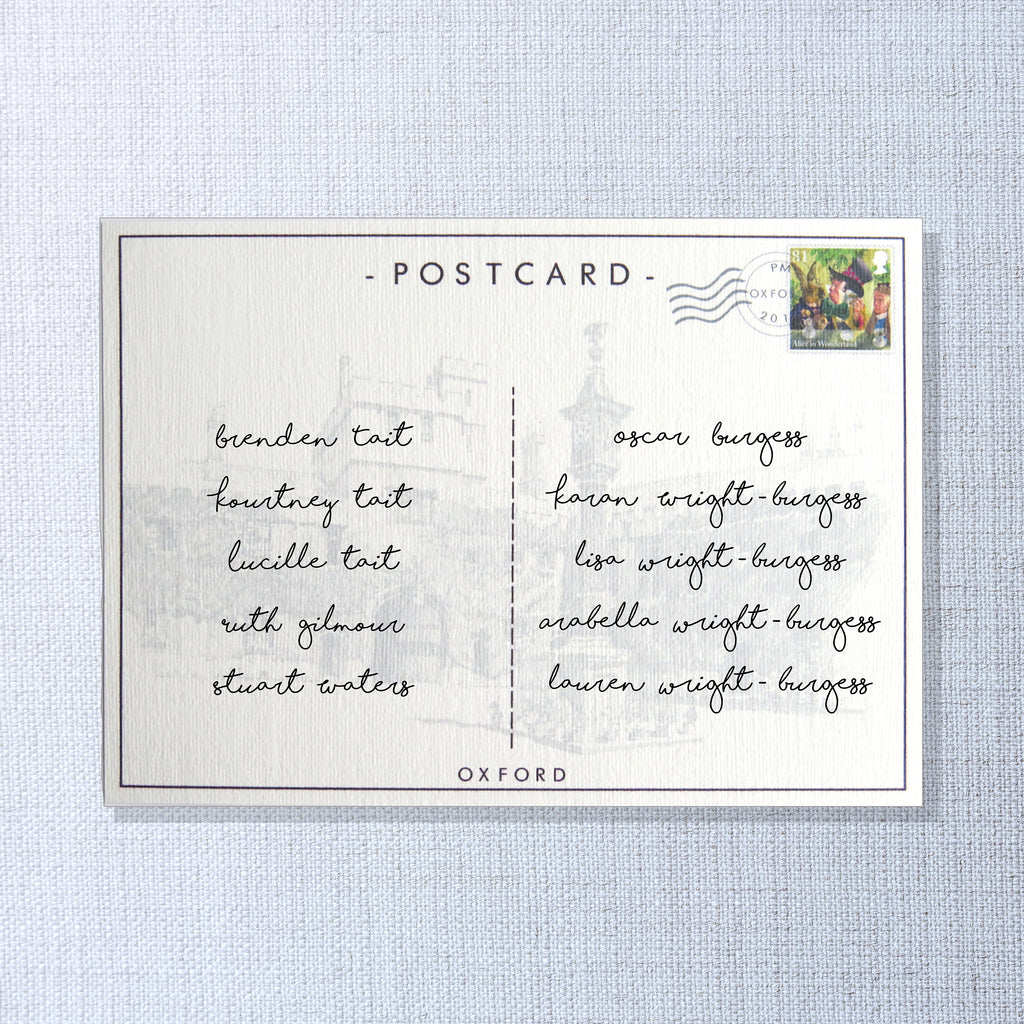 - POSTCARD -
PM
OXFO
201
81
Alice in Wonderland
brenden tait
kourtney tait
lucille tait
ruth gilmour
stuart waters
oscar burgess
karan wright-burgess
lisa wright-burgess
arabella wright-burgess
lauren wright-burgess
OXFORD